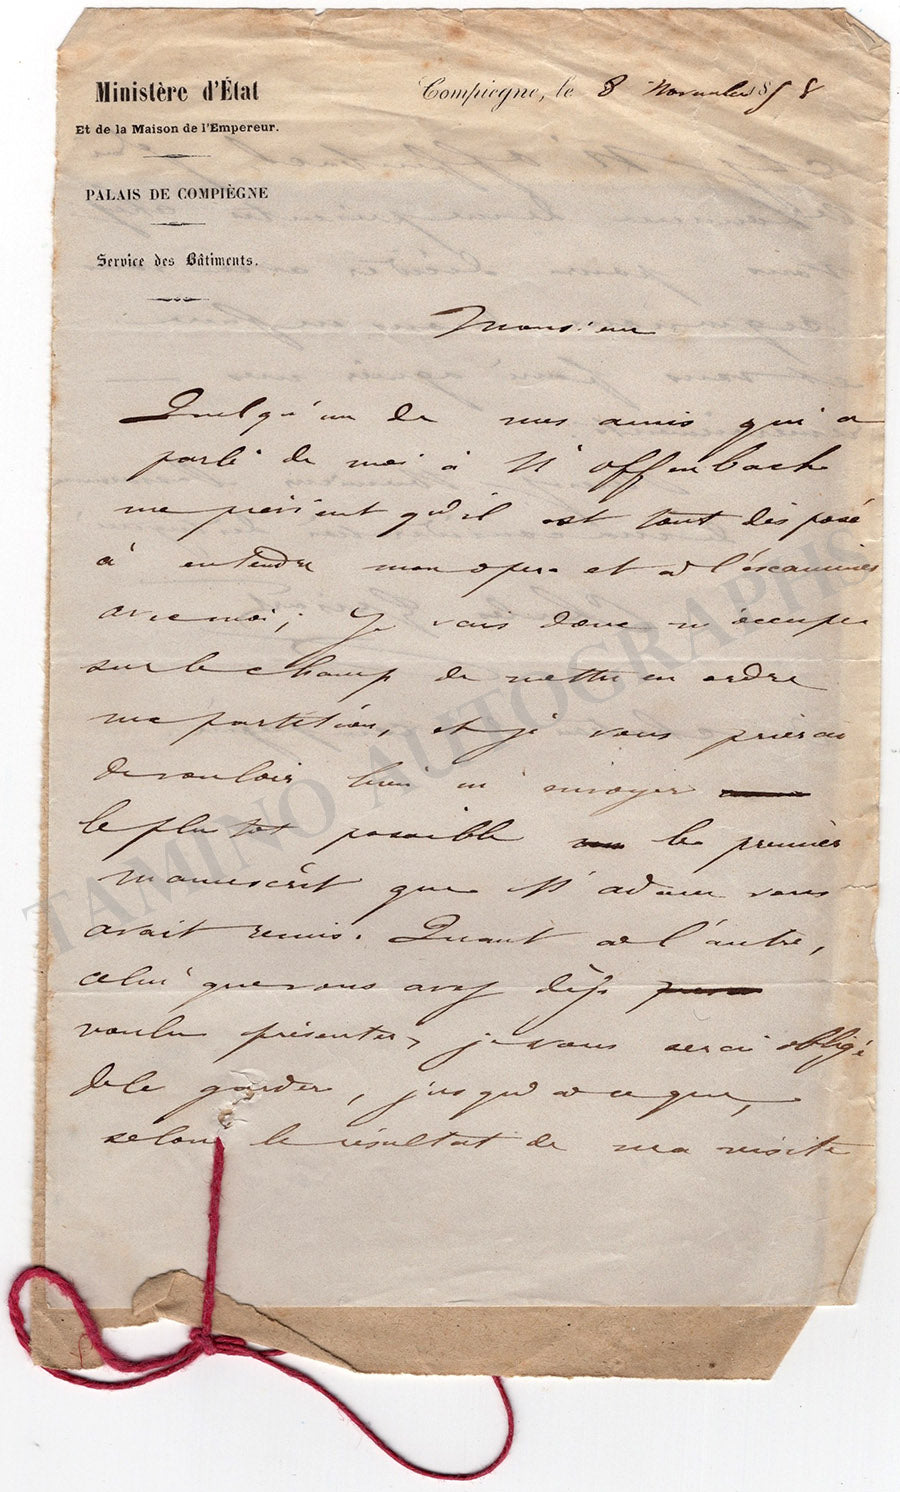 Ministère d'État
Et de la Maison de l'Empereur.
PALAIS DE COMPIÈGNE
Service des Bâtiments.
Compiegne, le 8 Novembre 1858
Monsieur
Quelqu'un de mes amis qui a
parlé de moi à M Offenbach
me prévient qu'il est tout disposé
à entendre mon opera et à l'examiner
avec moi; Je vais donc m'occuper
sur le champ de mettre en ordre
ma partition, et je vous prierai
de vouloir bien m'envoyer
le plutot possible le premier
manuscrit que M adam vous
avait remis. Quant à l'autre,
celui que vous avez déjà
voulu présenter, je vous serai obligé
de le garder, jusqu'à ce que,
selon le résultat de ma visite
TAMINO AUTOGRAPHS